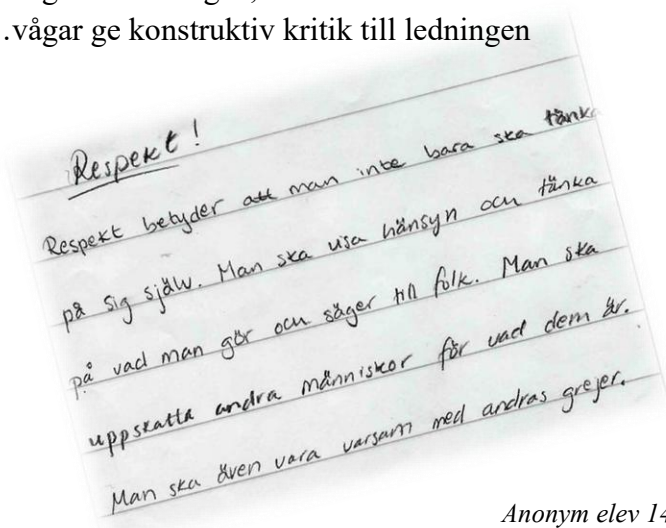 .vågar ge konstruktiv kritik till ledningen
Respekt!
Respekt betyder att man inte bara ska tänka
på sig själv. Man ska visa hänsyn och tänka
på vad man gör och säger till folk. Man ska
uppskatta andra människor för vad dem är.
Man ska även vara varsam med andras grejer.
Anonym elev 14